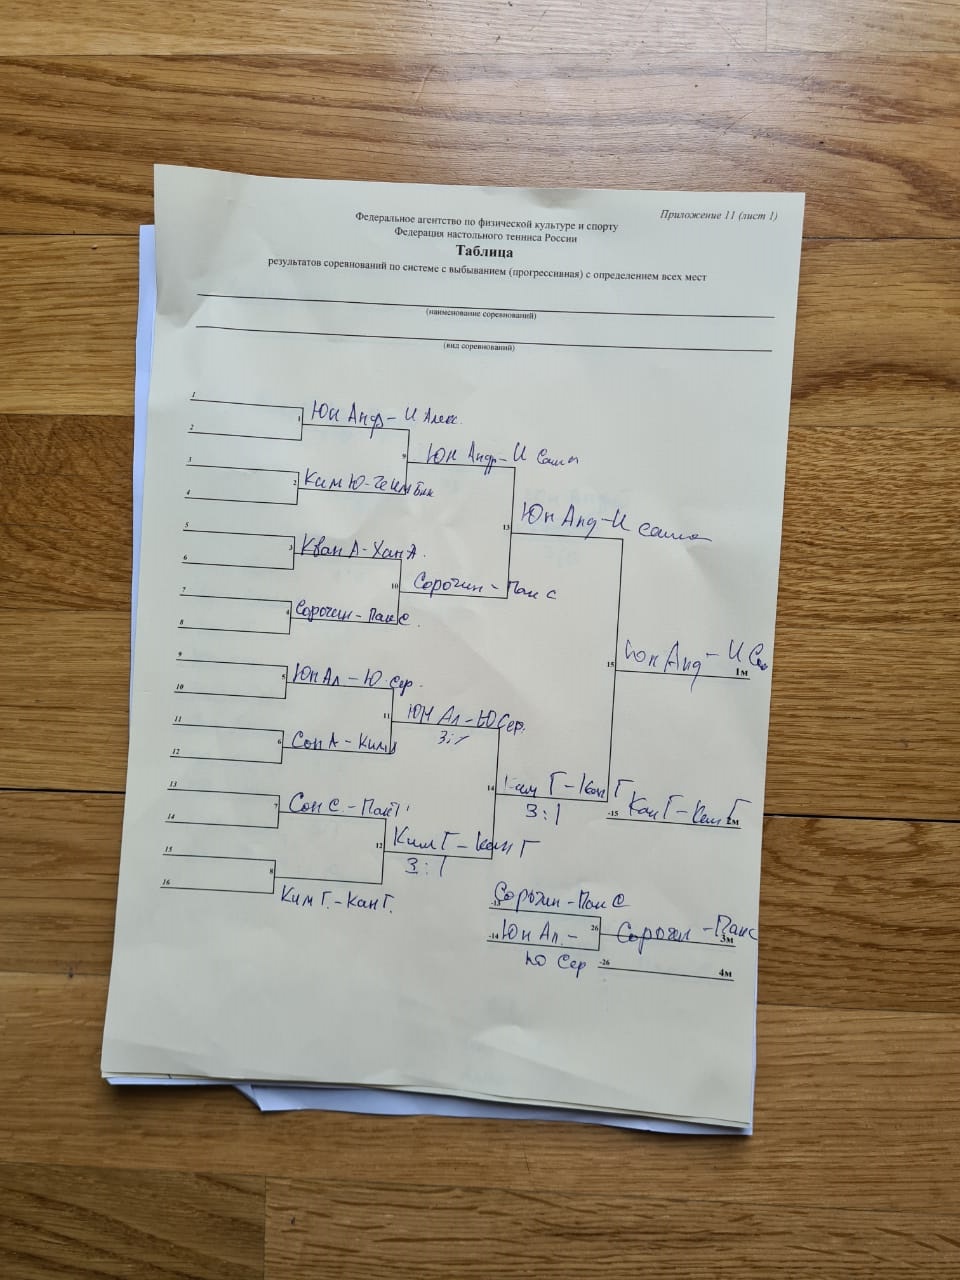 Приложение 11 (лист 1)
Федеральное агентство по физической культуре и спорту
Федерация настольного тенниса России
Таблица
результатов соревнований по системе с выбыванием (прогрессивная) с определением всех мест
(наименование соревнований)
(вид соревнований)
1
Юн Анд - И Алек.
1
2
9
Юн Андр - И Саша
3
Ким Ю-
2
4
13
Юн Анд - И Саша
5
Кван А - Хан А.
3
6
10
Сорочин - Пак С
7
Сорочин - Пак С.
4
8
15
Юн Анд - И
1м
9
Юн Ал - Ю Сер.
5
10
11
Юн Ал - Ю Сер.
3:1
11
Сон А - Ким
6
12
14
Ким Г - Кан Г
3:1
-15
Кан Г - Ким Г
2м
13
Сон С. - Пак
7
14
12
Ким Г - Кан Г
3:1
15
8
16
Ким Г. - Кан Г.
Сорочин - Пак С
-13
26
Сорочин - Пак С
3м
-14
Юн Ал. -
Ю Сер
-26
4м